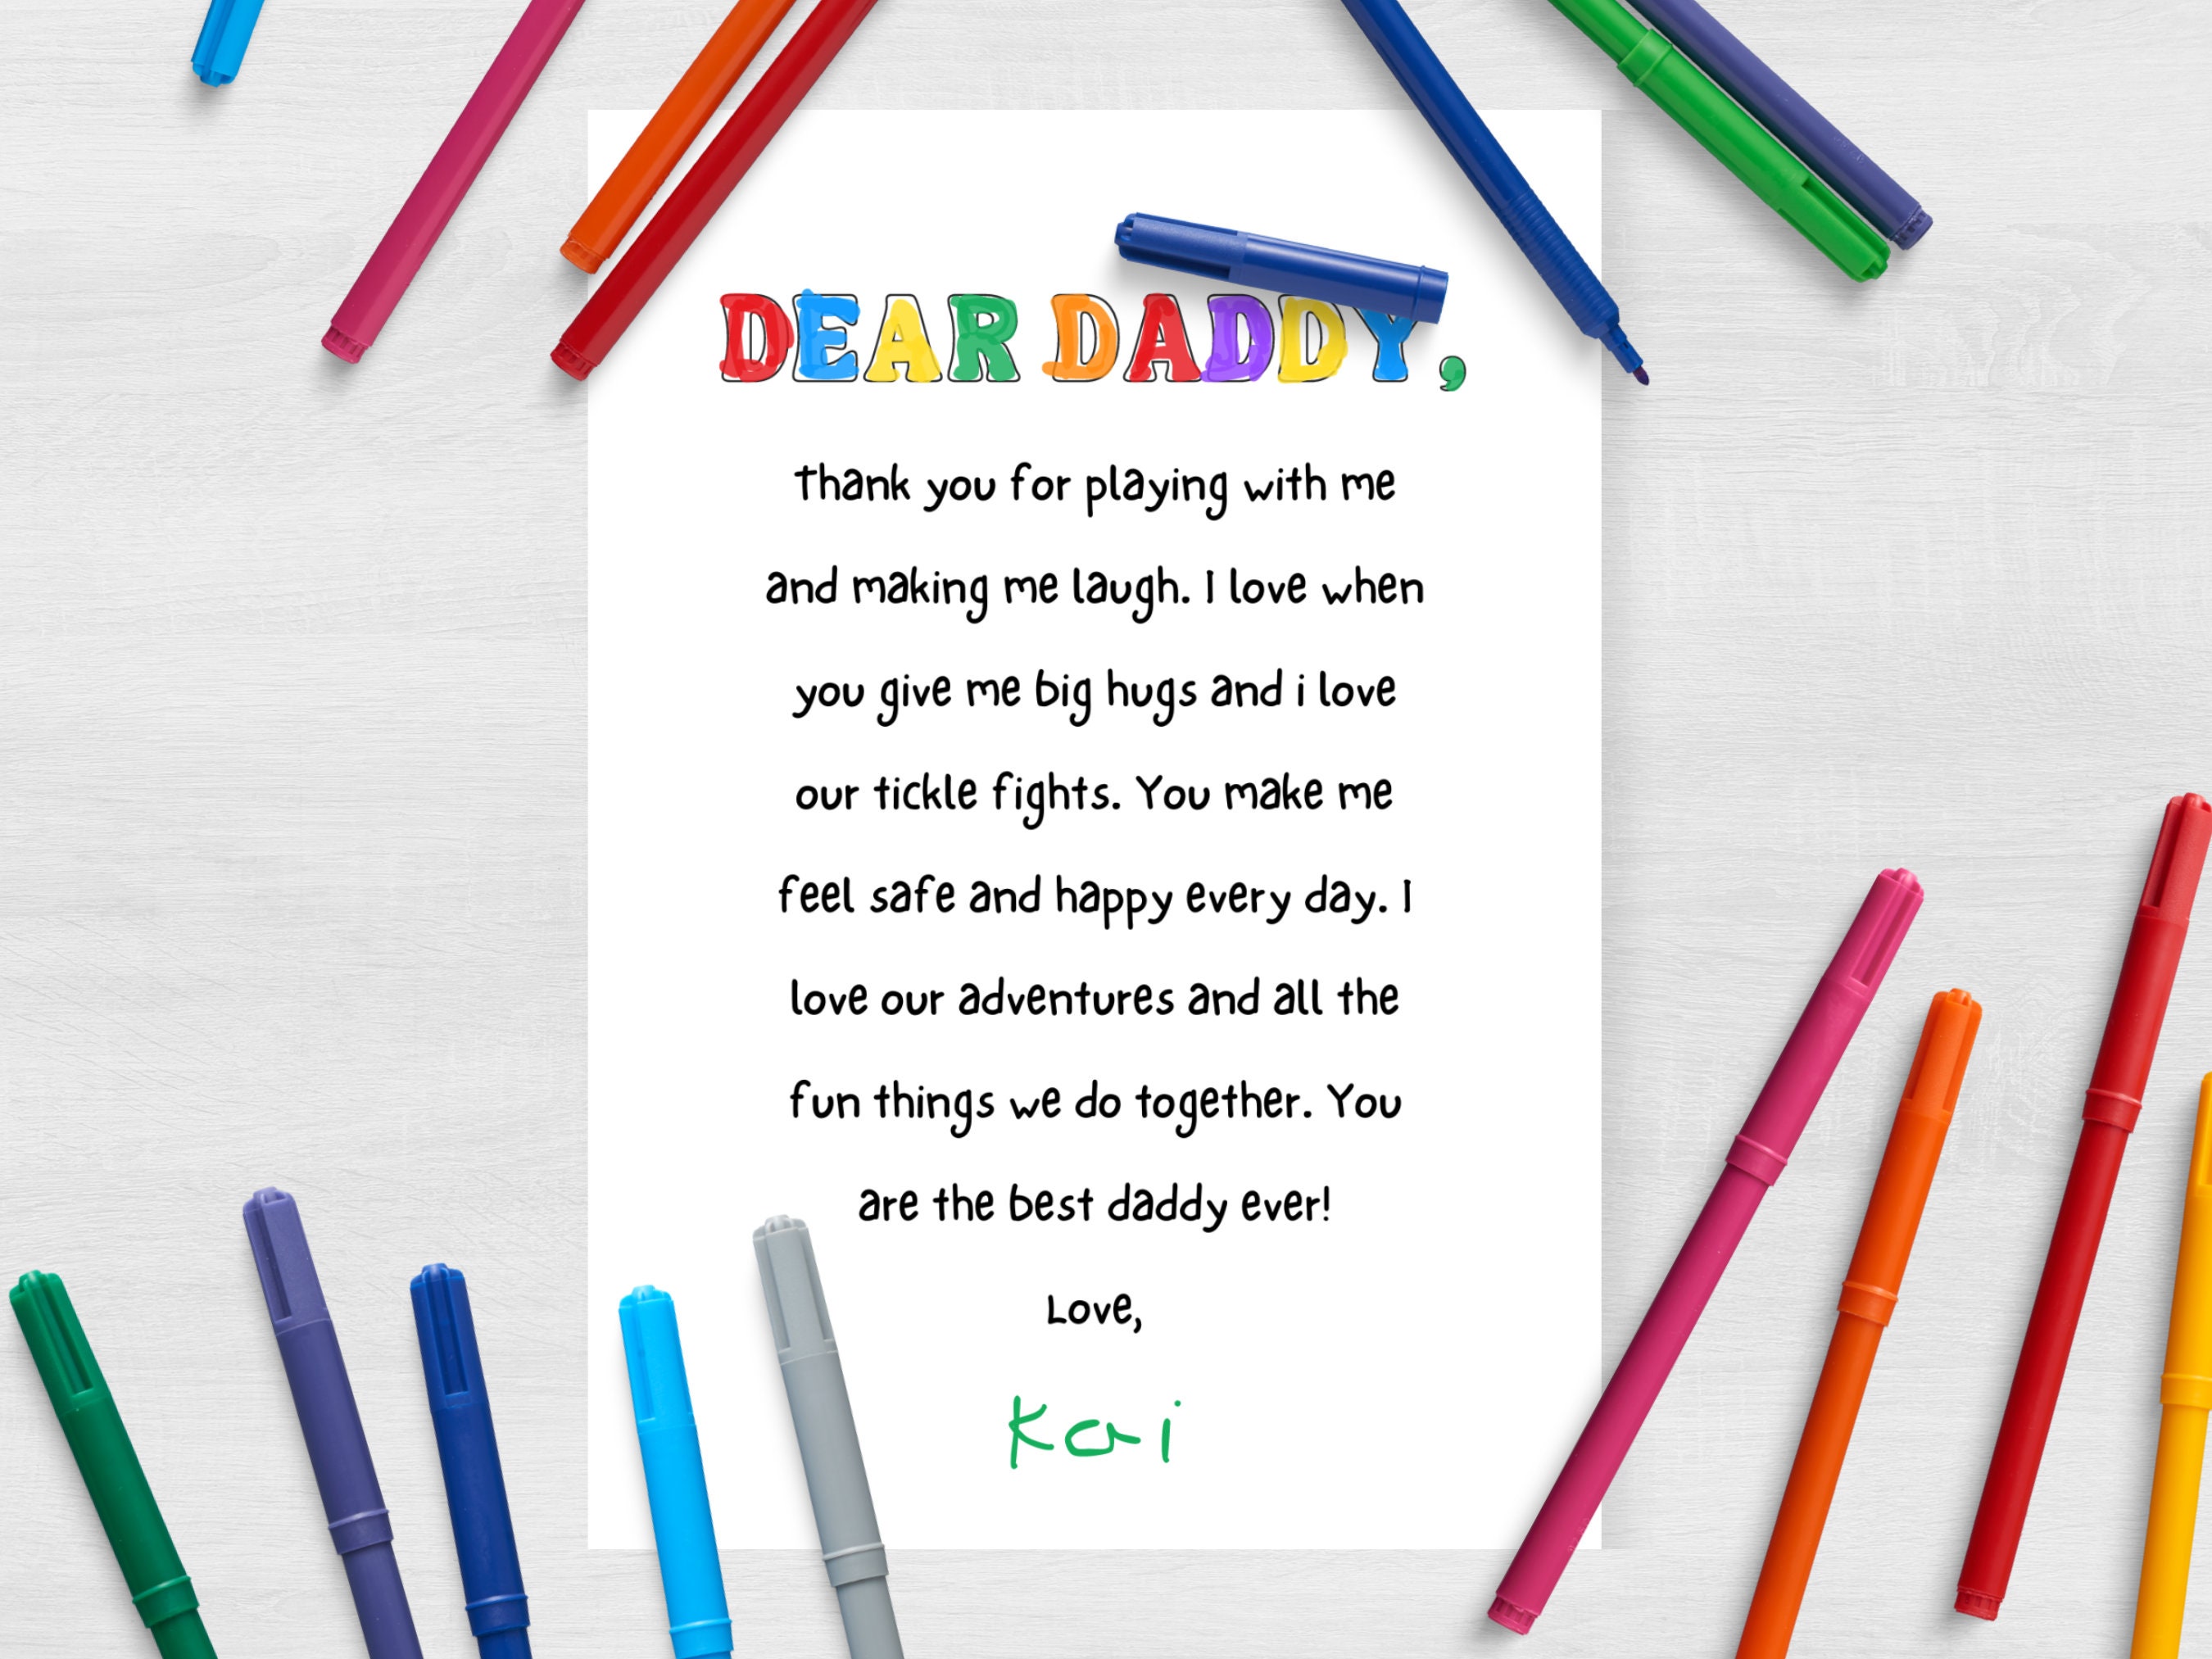 DEAR DADDY,
Thank you for playing with me
and making me laugh. I love when
you give me big hugs and i love
our tickle fights. You make me
feel safe and happy every day. I
love our adventures and all the
fun things we do together. You
are the best daddy ever!
Love,
Kai